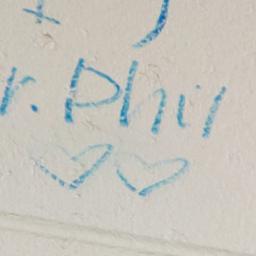 r. Phil
♡ ♡